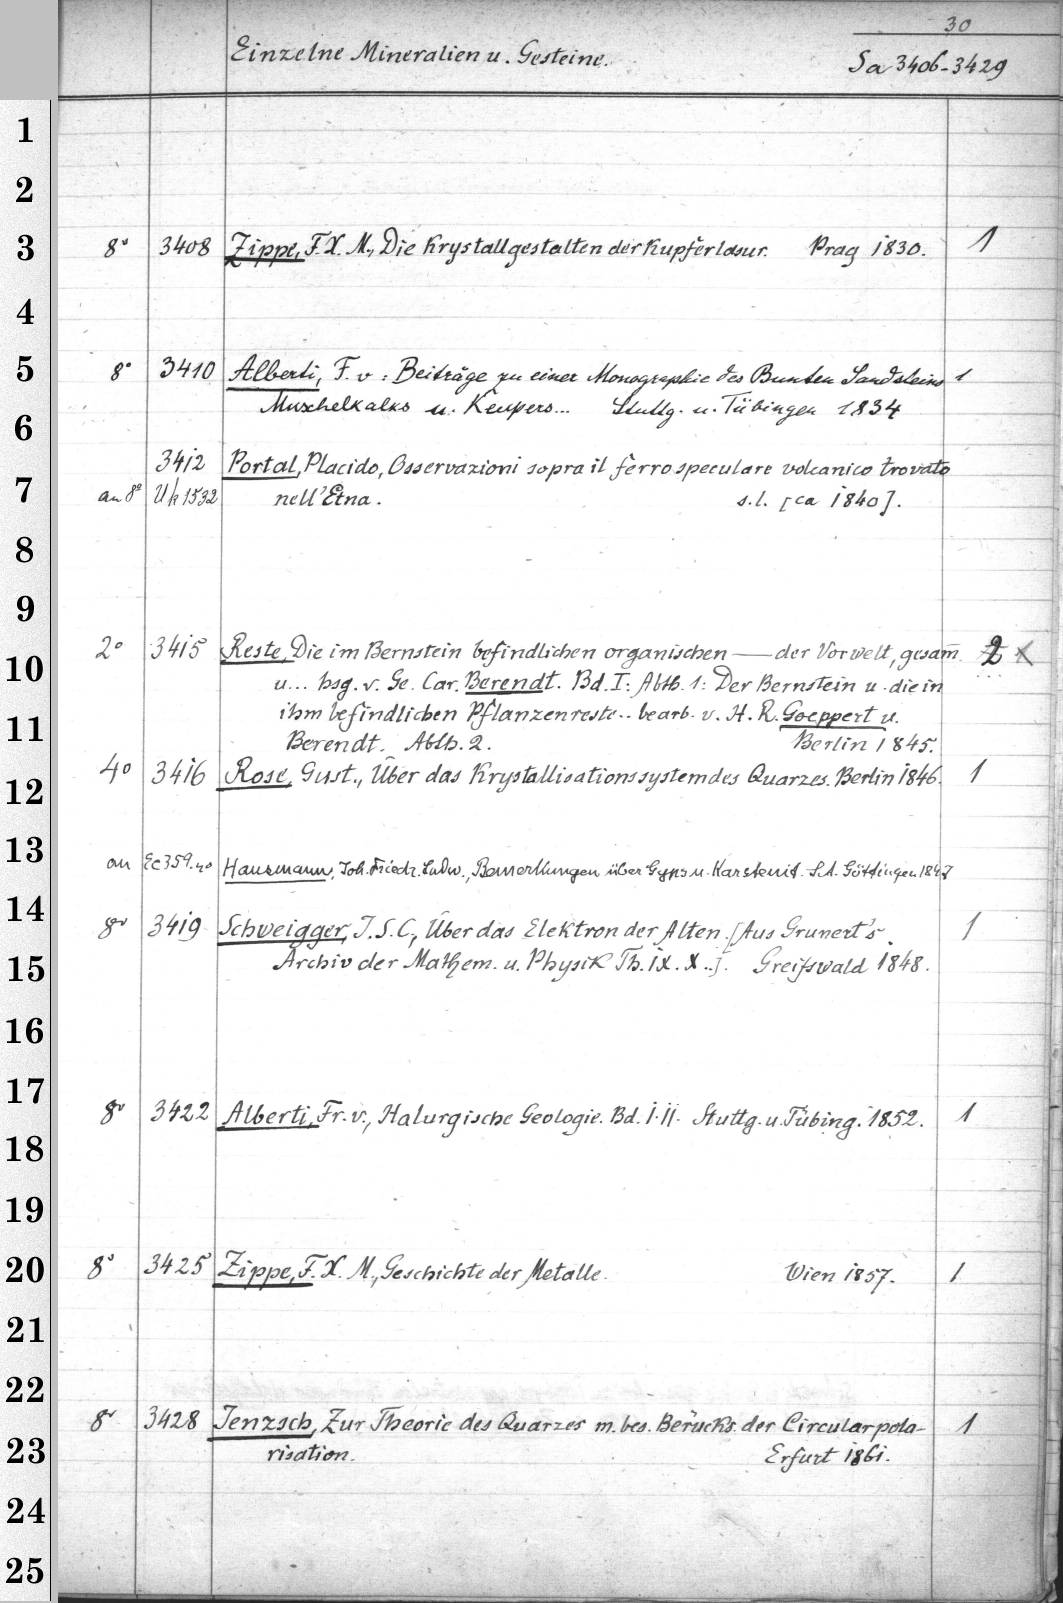 30
Einzelne Mineralien u. Gesteine. Sa 3406-3429
1
2
3 8° 3408 Zippe, F. X. M., Die Krystallgestalten der Kupferlasur. Prag 1830. 1
4
5 8° 3410 Alberti, F. v.: Beiträge zu einer Monographie des Bunten Sandsteins 1
6 Muschelkalks u. Keupers... Stuttg. u. Tübingen 1834
3412 Portal, Placido, Osservazioni sopra il ferro speculare volcanico trovato
7 an 8° Uk 1532 nell'Etna. s.l. [ca 1840].
8
9
2° 3415 Reste, Die im Bernstein befindlichen organischen — der Vorwelt, gesam̄. 2
10 u... hsg. v. Ge. Car. Berendt. Bd. I: Abth. 1: Der Bernstein u. die in
11 ihm befindlichen Pflanzenreste.. bearb. v. H. R. Goeppert u.
Berendt. Abth. 2. Berlin 1845.
12 4° 3416 Rose, Gust., Über das Krystallisationssystem des Quarzes. Berlin 1846. 1
13 an Ec 359.40 Hausmann, Joh. Friedr. Ludw., Bemerkungen über Gyps u. Karstenit. S.A. Göttingen 1847
14 8° 3419 Schweigger, J. S. C., Über das Elektron der Alten. [Aus Grunert's 1
15 Archiv der Mathem. u. Physik Th. IX. X..]. Greifswald 1848.
16
17 8° 3422 Alberti, Fr. v., Halurgische Geologie. Bd. I. II. Stuttg. u. Tübing. 1852. 1
18
19
20 8° 3425 Zippe, F. X. M., Geschichte der Metalle. Wien 1857. 1
21
22
8° 3428 Jenzsch, Zur Theorie des Quarzes m. bes. Berücks. der Circularpola- 1
23 risation. Erfurt 1861.
24
25